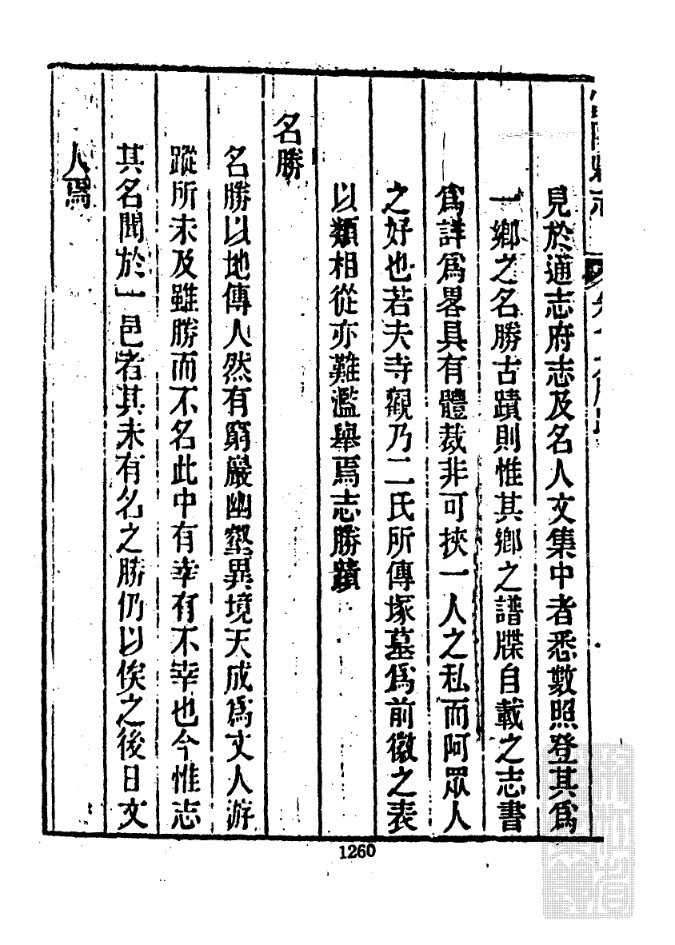 見於通志府志及名人文集中者悉數照登其爲
一鄉之名勝古蹟則惟其鄉之譜牒自載之志書
爲詳爲畧具有體裁非可挾一人之私而阿眾人
之好也若夫寺觀乃二氏所傳塚墓爲前徽之表
以類相從亦難濫舉焉志勝蹟
名勝
名勝以地傳人然有窮巖幽壑異境天成爲文人游
蹤所未及雖勝而不名此中有幸有不幸也今惟志
其名聞於一邑者其未有名之勝仍以俟之後日文
人焉
1260